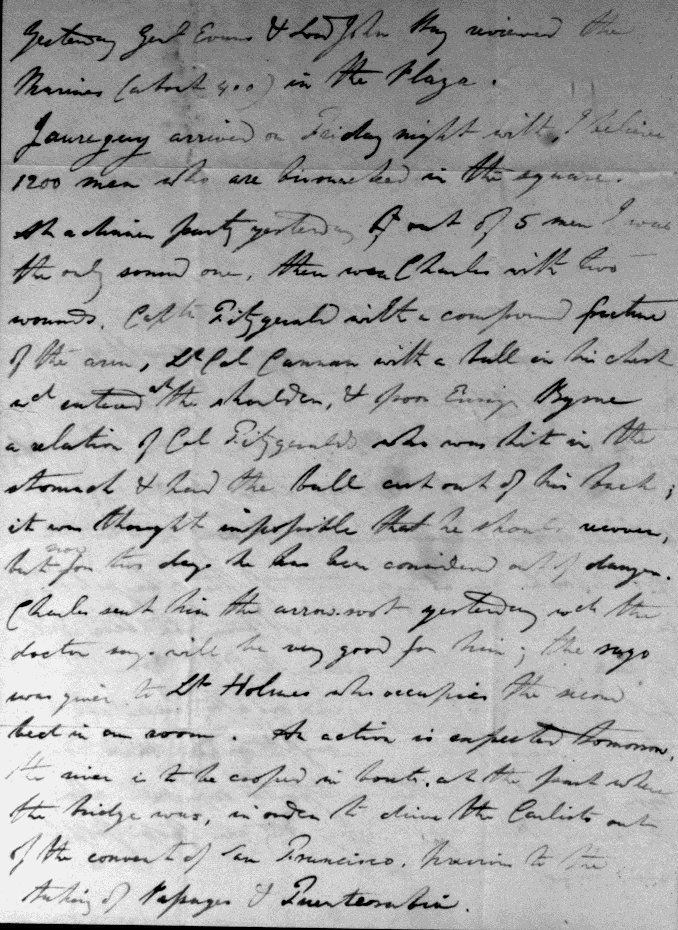 Yesterday Genl Evans & Lord John Hay reviewed the
Marines (about 400) in the Plaza.
Jaureguy arrived on Friday night with, I believe
1200 men who are bivouacked in the square.
At a dinner party yesterday out of 5 men I was
the only sound one, there was Charles with two
wounds. Captn Fitzgerald with a compound fracture
of the arm, Lt Col Cannan with a ball in his chest
wch entered at the shoulder, & poor Ensign Byrne
a relation of Col Fitzgerald's who was hit in the
stomach & had the ball cut out of his back;
it was thought impossible that he should recover,
but now for this days he has been considered out of danger.
Charles sent him the arrow-root yesterday wch the
doctor says will be very good for him; the sago
was given to Lt Holmes who occupies the second
bed in our room. An action is expected tomorrow,
the river is to be crossed in boats, at the part where
the bridge was, in order to drive the Carlists out
of the convent of San Francisco. Previous to the
taking of Passages & Fuenterabia.